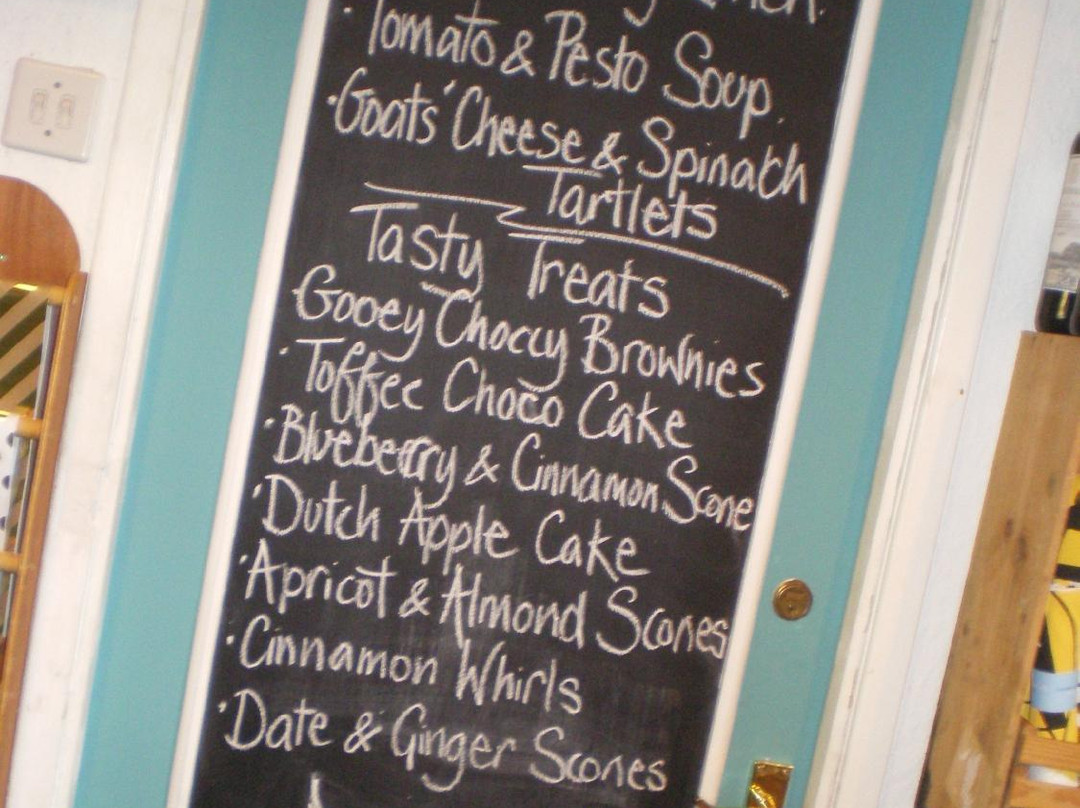 · Tomato & Pesto Soup.
· Goats' Cheese & Spinach
Tartlets
Tasty Treats
Gooey Choccy Brownies
· Toffee Choco Cake
· Blueberry & Cinnamon Scone
· Dutch Apple Cake
· Apricot & Almond Scones
· Cinnamon Whirls
· Date & Ginger Scones